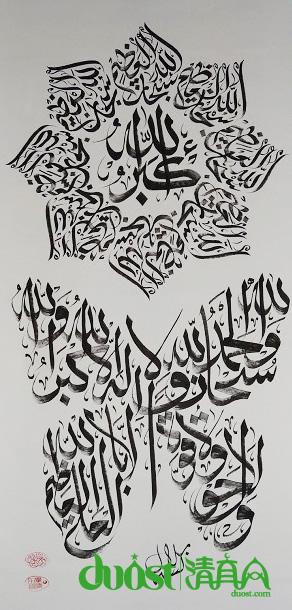 سبحان الله العظيم
الله أكبر
سبحان الله والحمد لله ولا إله إلا الله والله أكبر
ولا حول ولا قوة إلا بالله العلي العظيم
duost 清真
duost.com